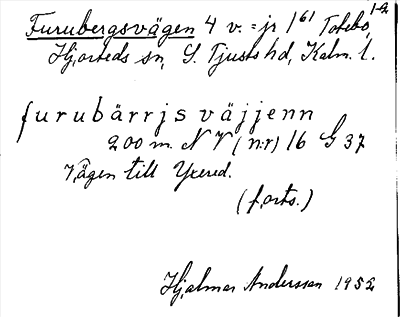 Furubergsvägen 4 v. = jr 1⁶¹ Totebo, 1-2
Hjorteds sn, S. Tjusts hd, Kalm. l.
furubärrjsväjjenn
200 m. NV (n:r) 16 G 37
Vägen till Yxered.
(forts.)
Hjalmar Andersson 1952